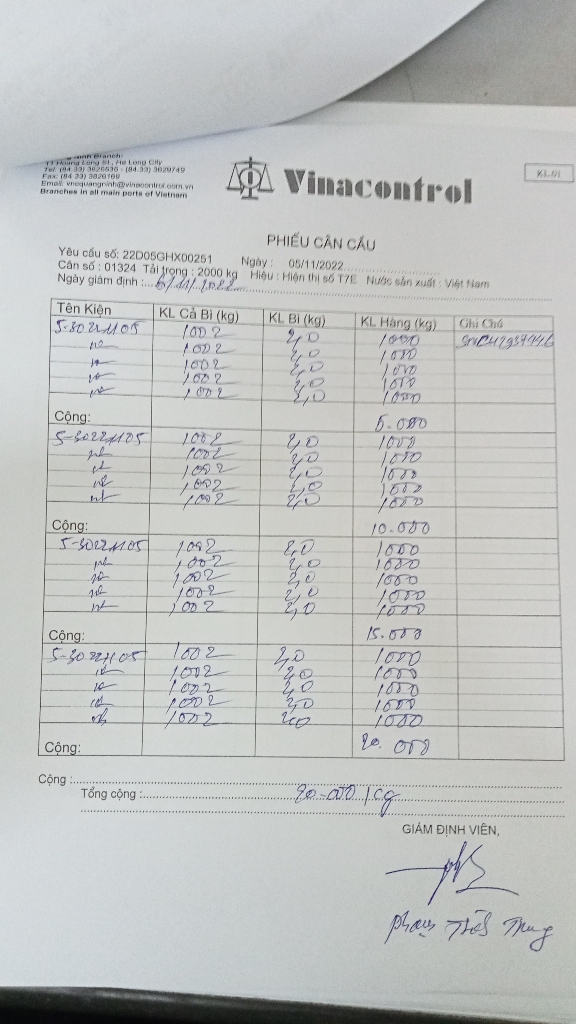 11 Hoang Long St., Ha Long City
Tel: (84.33) 3825535 - (84.33) 3829749
Fax: (84 33) 3826169
Email: vncquangninh@vinacontrol.com.vn
Branches in all main ports of Vietnam
Vinacontrol
KL/01
PHIẾU CÂN CẨU
Yêu cầu số: 22D05GHX00251 Ngày : 05/11/2022
Cân số : 01324 Tải trọng : 2000 kg Hiệu : Hiện thị số T7E Nước sản xuất : Việt Nam
Ngày giám định :
Tên Kiện KL Cả Bì (kg) KL Bì (kg) KL Hàng (kg) Ghi Chú
5-30221105 1002 2,0 1000
nt 1002 2,0 1000
nt 1002 2,0 1000
nt 1002 2,0 1000
nt 1002 2,0 1000
Cộng: 5.000
5-30221105 1002 2,0 1000
nt 1002 2,0 1000
nt 1002 2,0 1000
nt 1002 2,0 1000
nt 1002 2,0 1000
Cộng: 10.000
5-30221105 1002 2,0 1000
nt 1002 2,0 1000
nt 1002 2,0 1000
nt 1002 2,0 1000
nt 1002 2,0 1000
Cộng: 15.000
5-30221105 1002 2,0 1000
nt 1002 2,0 1000
nt 1002 2,0 1000
nt 1002 2,0 1000
nt 1002 2,0 1000
Cộng: 20.000
Cộng :
Tổng cộng : 20.000 kg
GIÁM ĐỊNH VIÊN,
Phạm Trung